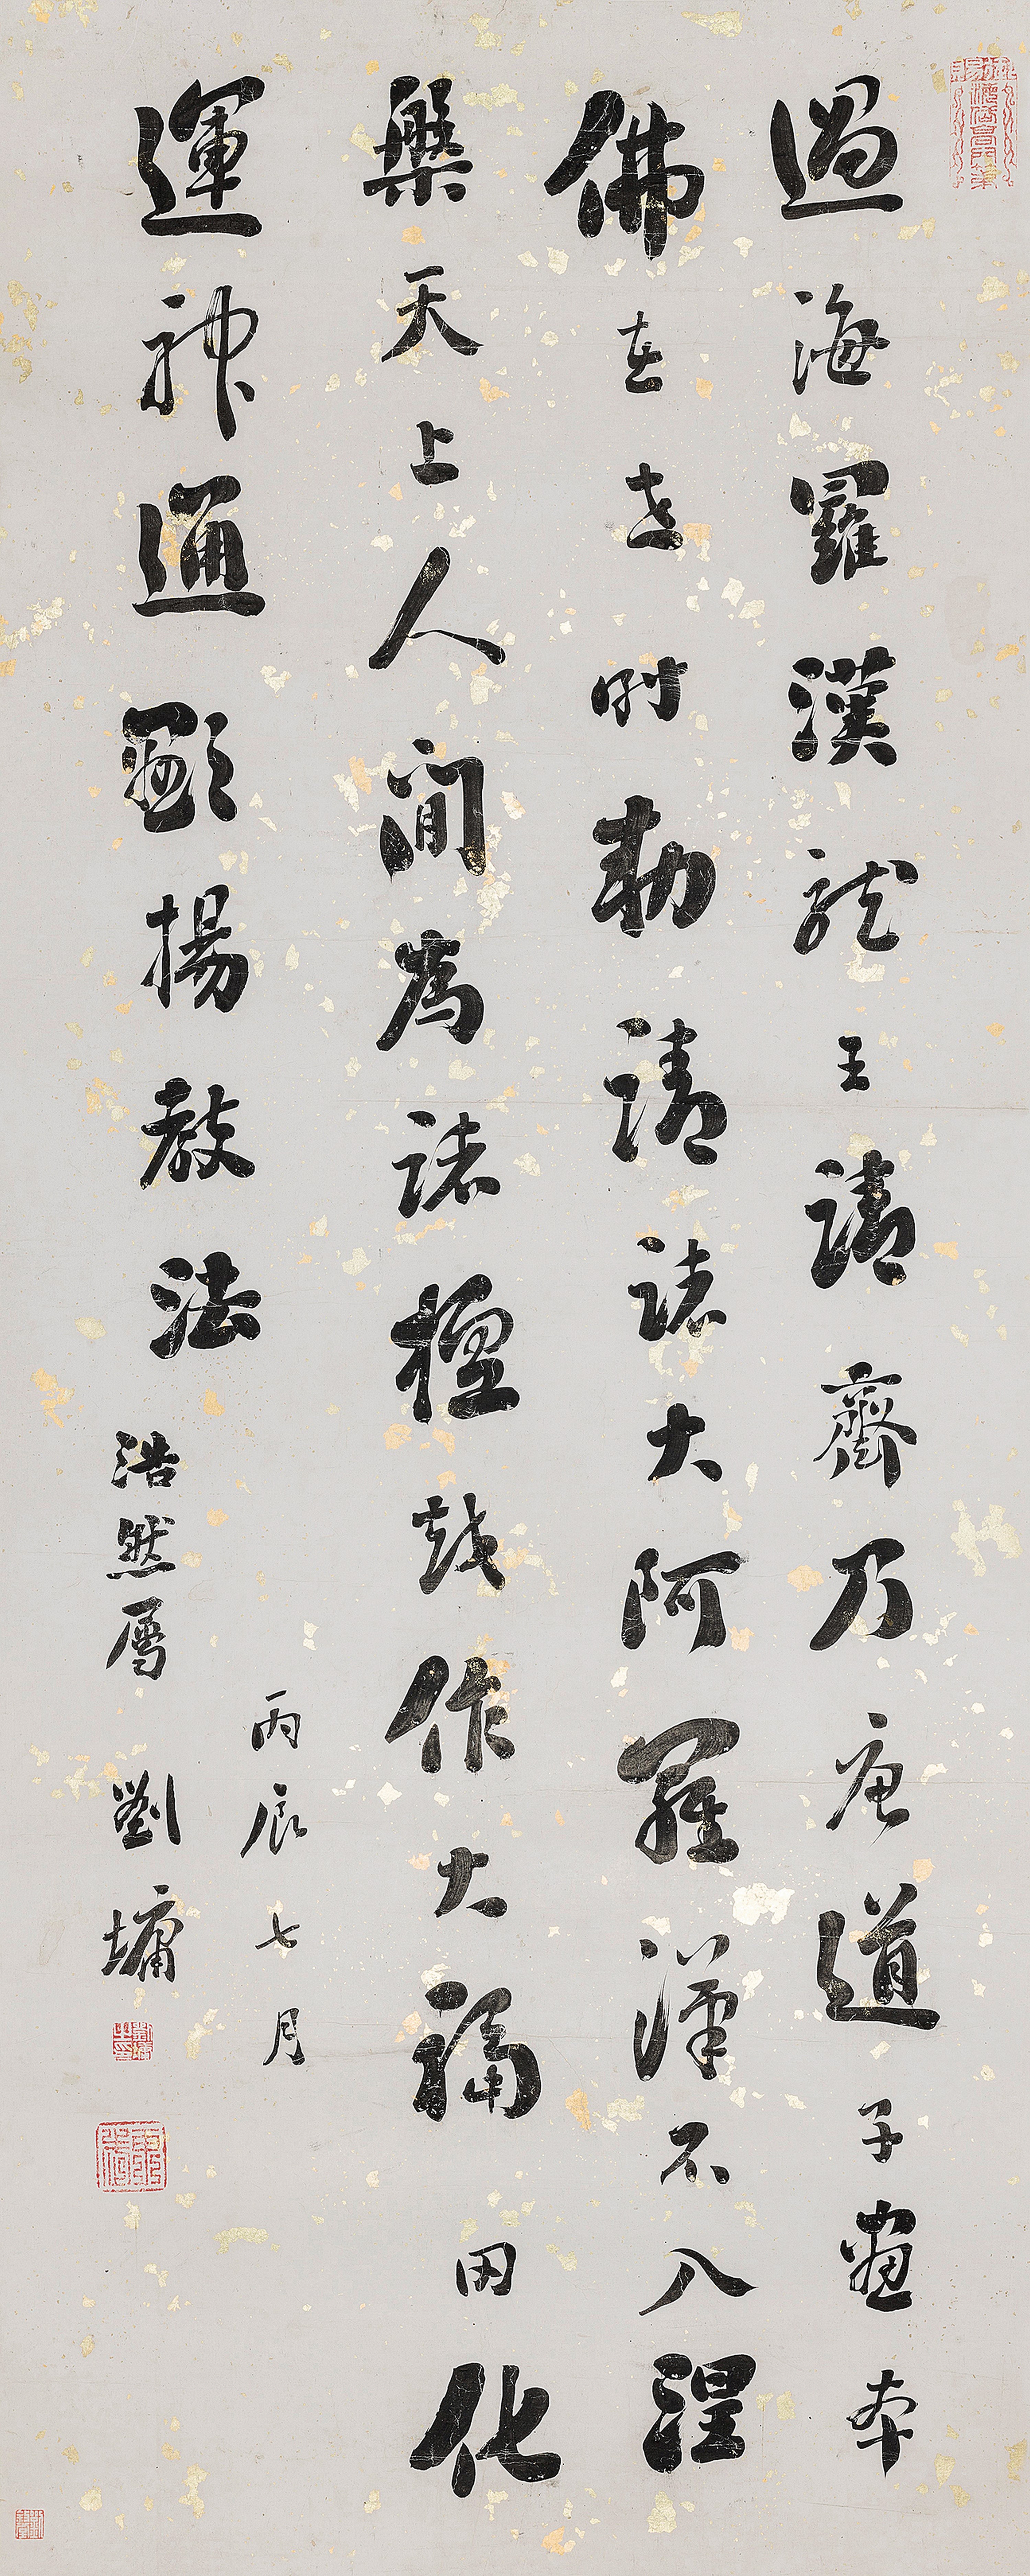 過海羅漢龍王請齋乃唐道子畫本
佛在世時勅請諸大阿羅漢不入涅
槃天上人間為諸檀越作大福田化
運神通顯揚教法
丙辰七月
浩然屬
劉墉
劉墉之印